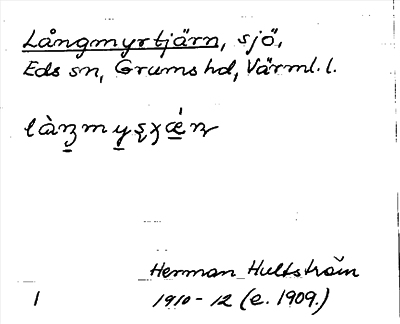 Långmyrtjärn, sjö.
Eds sn, Grums hd, Värml. l.
Herman Hultström
1 1910-12 (e. 1909.)